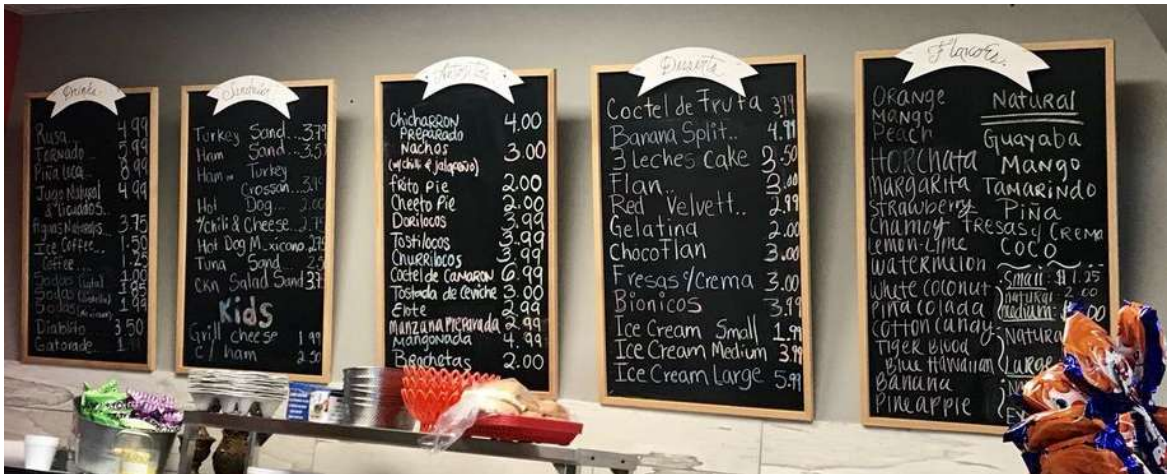 Drinks
Rusa 4.99
TORNADO
Piña Loca
Jugo Natural 4.99
& Licuados..
Aguas Naturales.. 3.75
Ice Coffee.. 1.50
Coffee.. 1.25
Sodas (Lata)
Sodas
Sodas
Diablito 3.50
Gatorade
Turkey Sand... 3.79
Ham Sand... 3.59
Ham or Turkey
Crossan...
Hot Dog... 2.00
Chili & Cheese..
Hot Dog Mexicano
Tuna Sand...
Ckn Salad Sand
Kids
Grill cheese 1.99
c/ ham 2.50
Antojitos
CHICHARRON 4.00
PREPARADO
Nachos 3.00
(w/chili & jalapeño)
frito Pie 2.00
Cheeto Pie 2.00
Dorilocos 3.99
Tostilocos 3.99
Churrilocos 3.99
Coctel de CAMARON 6.99
Tostada de Ceviche 3.00
Elote 2.99
manzana Preparada 2.99
Mangonada 4.99
Brochetas 2.00
Desserts
Coctel de Fruta 3.99
Banana Split.. 4.99
3 Leches Cake 3.50
Flan..
Red Velvett.. 2.99
Gelatina 2.00
ChocoFlan 3.00
Fresas c/Crema 3.00
Bionicos 3.99
Ice Cream Small 1.99
Ice Cream Medium 3.99
Ice Cream Large 5.99
Flavors
ORANGE
MANGO
Peach
HORChata
MARGARITA
STRAWBERRY
Chamoy
Lemon-Lime
WATERMELON
White COCONUT
PIÑA COLADA
COTTON CANDY
TIGER BLOOD
Blue Hawaiian
BANANA
PINEAPPLE
NATURAL
Guayaba
MANGO
TAMARINDO
Piña
Fresas c/ CREMA
COCO
Small: $1.25
natural
medium:
NATURA
LARGE